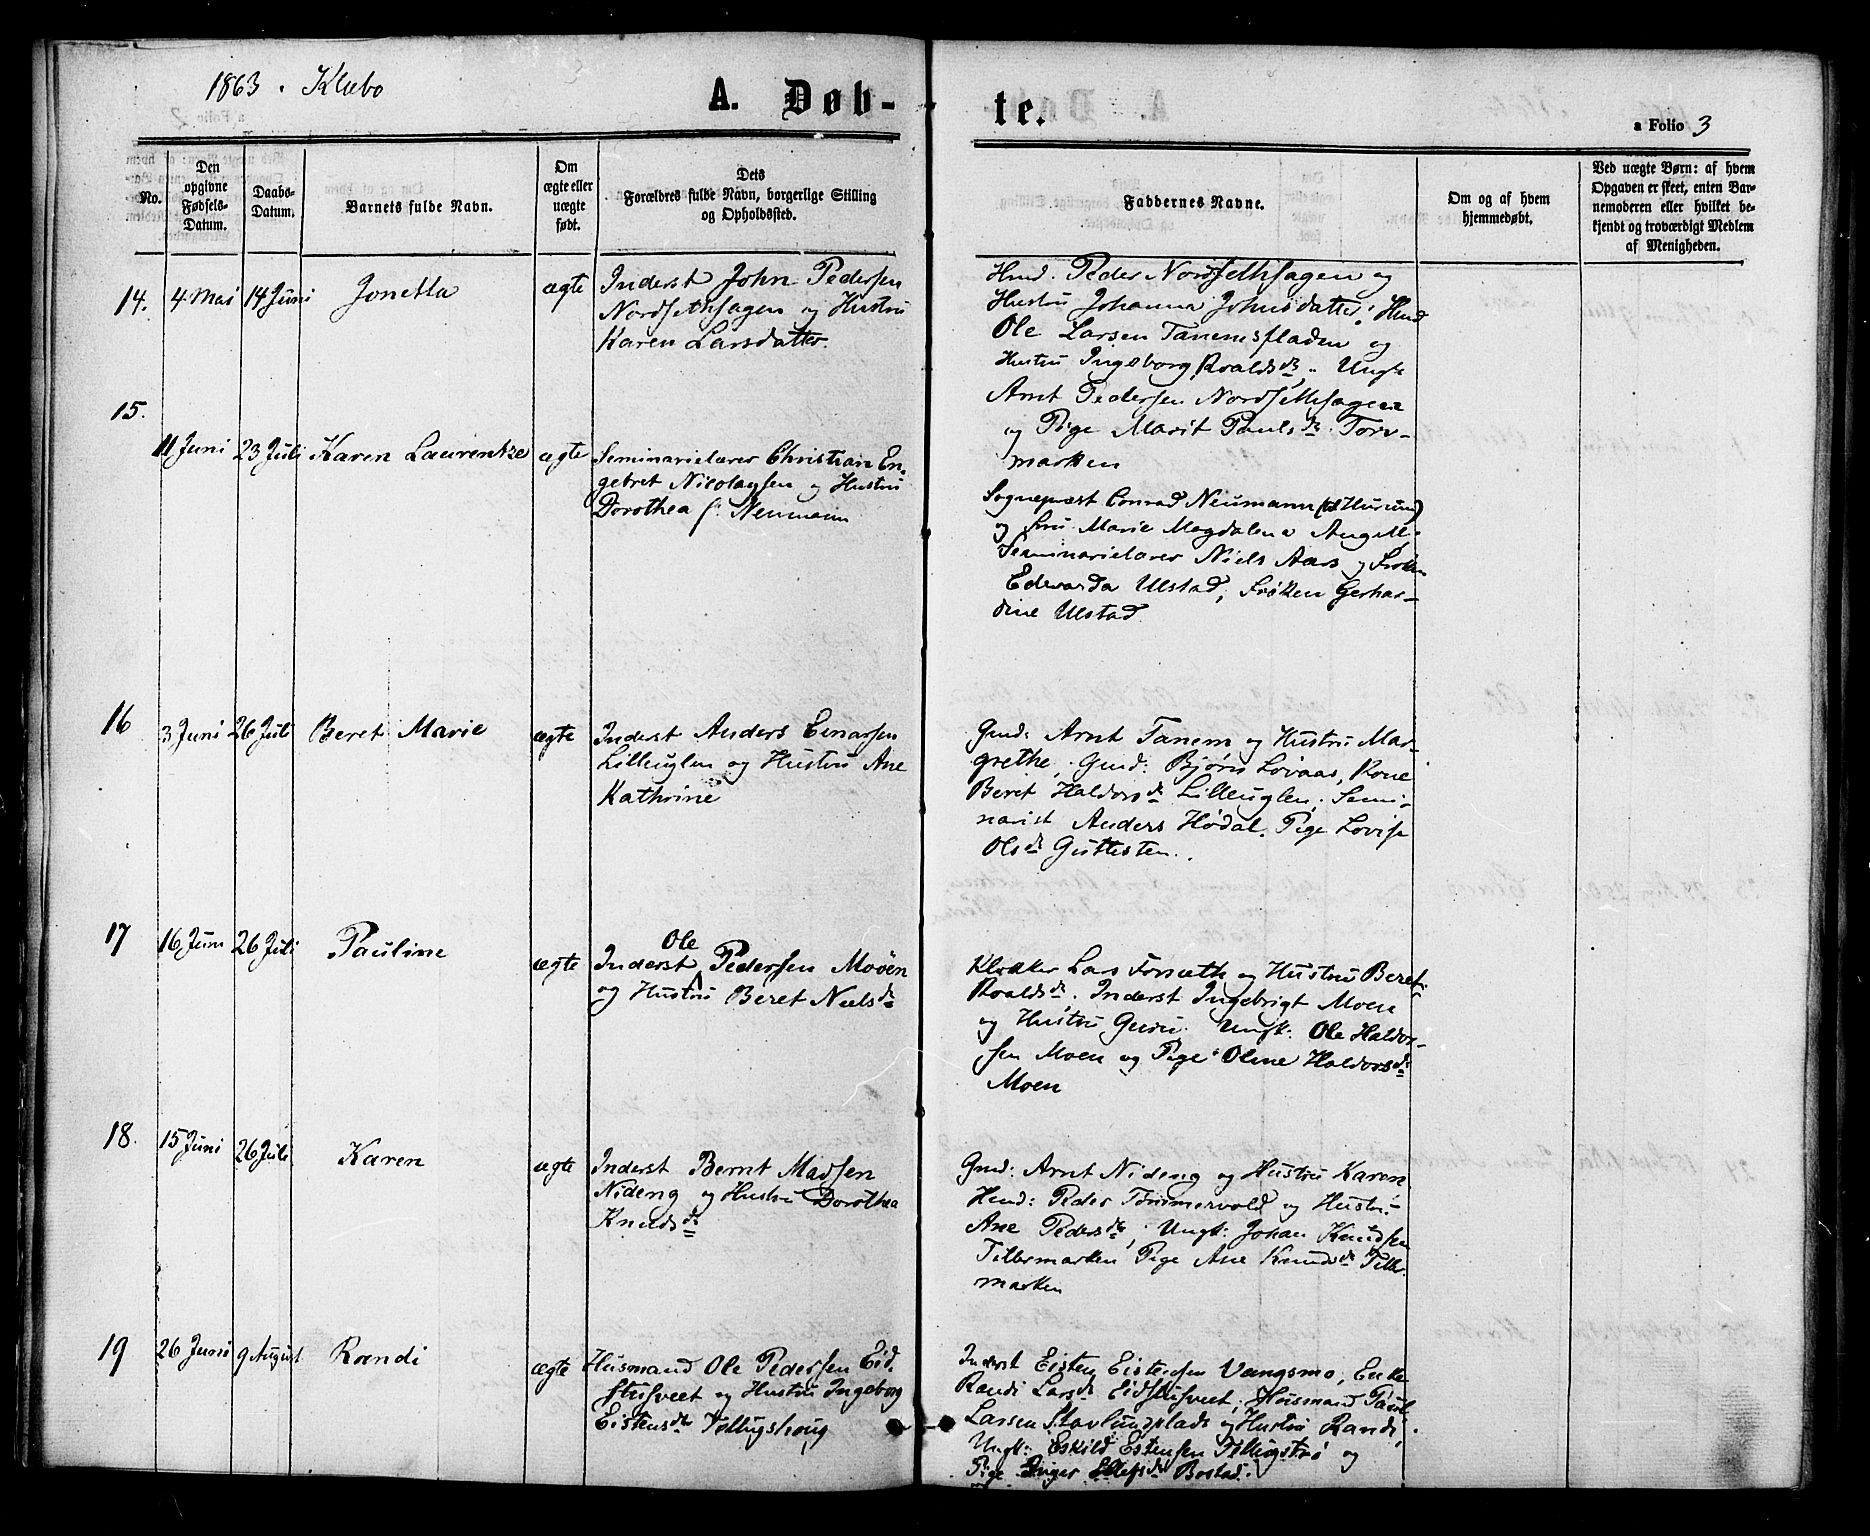 1863. Klæbo
A. Døb-
te.
a Folio 3
No.
Den opgivne Fødsels-Datum.
Daabs-Datum.
Barnets fulde Navn.
Om ægte eller uægte født.
Dets
Forældres fulde Navn, borgerlige Stilling
og Opholdssted.
Faddernes Navne.
Om og af hvem
hjemmedøbt.
Ved uægte Børn: af hvem
Opgaven er skeet, enten Bar-
nemoderen eller hvilket be-
kjendt og troværdigt Medlem
af Menigheden.
14. 4 Mai 14 Juni Jonetta ægte
Inderst John Pedersen
Nordsethhagen og Hustru
Karen Larsdatter.
Hmd. Peder Nordsethhagen og
Hustru Johanna Johnsdatter; Hmd
Ole Larsen Tanemsfladen og
Hustru Ingeborg Roaldsdr. Ungk
Arnt Pedersen Nordsethhagen
og Pige Marit Paulsdr. Torv-
marken
15. 11 Juni 23 Juli Karen Laurentze ægte
Seminarielærer Christian En-
gebret Nicolaysen og Hustru
Dorothea f. Neumann
Sognepræst Conrad Neumann (til Hurum)
og Fru Marie Magdalena Angell,
Seminarielærer Niels Aars og Frøken
Edevarda Ulstad, Frøken Gerhar-
dine Ulstad
16 3 Juni 26 Juli Beret Marie ægte
Inderst Anders Einarsen
Lilleuglen og Hustru Ane
Kathrine
Gmd: Arnt Tanem og Hustru Mar-
grethe, Gmd: Bjørn Løvaas, Kone
Beret Haldorsdr Lilleuglen. Semi-
narist Anders Hødal. Pige Lovise
Olsdr Guttesten.
17 16 Juni 26 Juli Pauline ægte
Inderst Ole Pedersen Moøen
og Hustru Beret Nielsdr
Klokker Lars Forsæth og Hustru Beret
Roaldsdr. Inderst Ingebrigt Moen
og Hustru Guru. Ungk: Ole Haldor-
sen Moen og Pige Oline Haldorsdr
Moen
18. 15 Juni 26 Juli Karen ægte
Inderst Bernt Madsen
Nideng og Hustru Dorothea
Knudsdr
Gmd: Arnt Nideng og Hustru Karen.
Hmd: Peder Tømmervold og Hustru
Ane Pedersdr, Ungk: Johan Knudsen
Tillermarken Pige Ane Knudsdr Tiller-
marken
19 26 Juni 9 August Randi ægte
Husmand Ole Pedersen Eid-
stusveet og Hustru Ingeborg
Eistensdr Tellugshoug
Inderst Eisten Eistensen Vangsmo, Enke
Randi Larsdr Eidstusveet, Husmand Paul
Larsen Stavlundplads og Hustru Randi,
Ungk: Eskild Estensen Tellugstrø og
Pige Inger Ellefsdr Bostad.